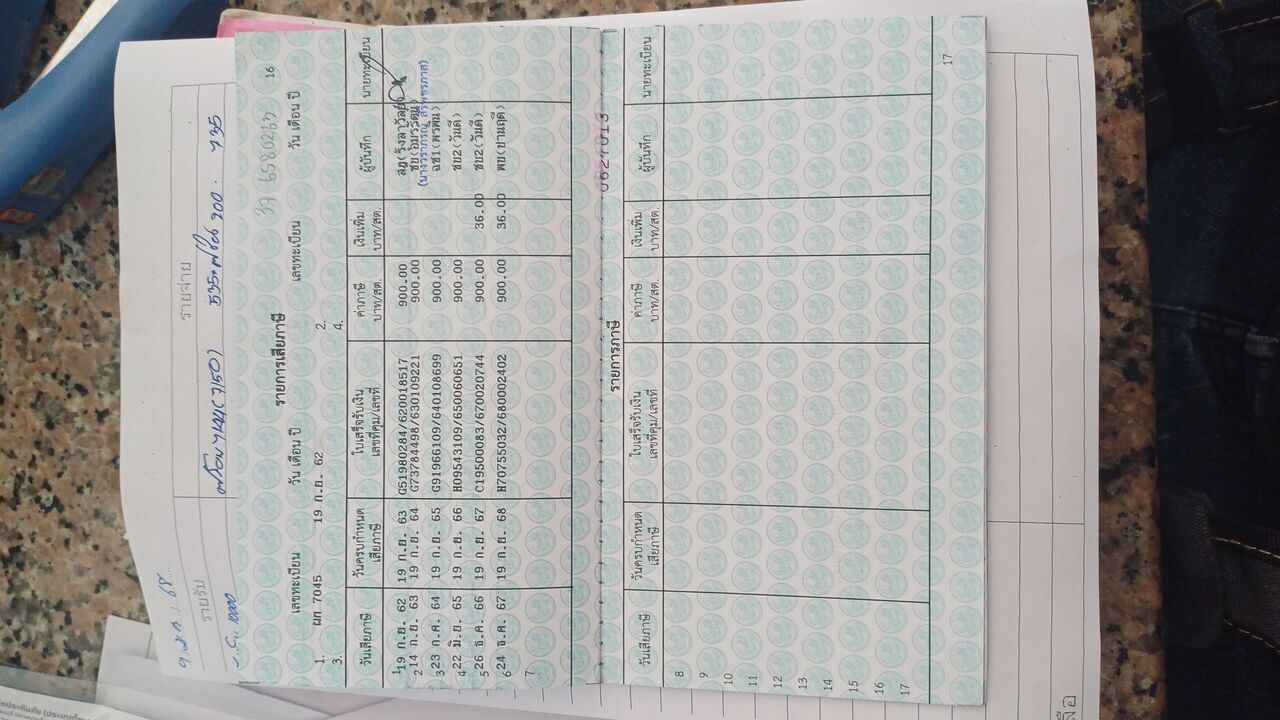 รายรับ
รายจ่าย
735
16
37 6580263
รายการเสียภาษี
เลขทะเบียน วัน เดือน ปี เลขทะเบียน วัน เดือน ปี
1. ผก 7045 19 ก.ย. 62 2.
3. 4.
วันเสียภาษี วันครบกำหนดเสียภาษี ใบเสร็จรับเงิน เลขที่คุม/เลขที่ ค่าภาษี บาท/สต. เงินเพิ่ม บาท/สต. ผู้บันทึก นายทะเบียน
1 19 ก.ย. 62 19 ก.ย. 63 G51980284/620018517 900.00
2 14 ก.ย. 63 19 ก.ย. 64 G73784498/630109221 900.00
3 23 ก.ค. 64 19 ก.ย. 65 G91966109/640108699 900.00 ฉช1(พรพิน)
4 22 มิ.ย. 65 19 ก.ย. 66 H09543109/650060651 900.00 ชย2(วันดี)
5 26 ธ.ค. 66 19 ก.ย. 67 C19500083/670020744 900.00 36.00 ชย2(วันดี)
6 24 ธ.ค. 67 19 ก.ย. 68 H70755032/680002402 900.00 36.00 พย(ปานฤดี)
7
0627013
รายการภาษี
วันเสียภาษี วันครบกำหนดเสียภาษี ใบเสร็จรับเงิน เลขที่คุม/เลขที่ ค่าภาษี บาท/สต. เงินเพิ่ม บาท/สต. ผู้บันทึก นายทะเบียน
8
9
10
11
12
13
14
15
16
17
17